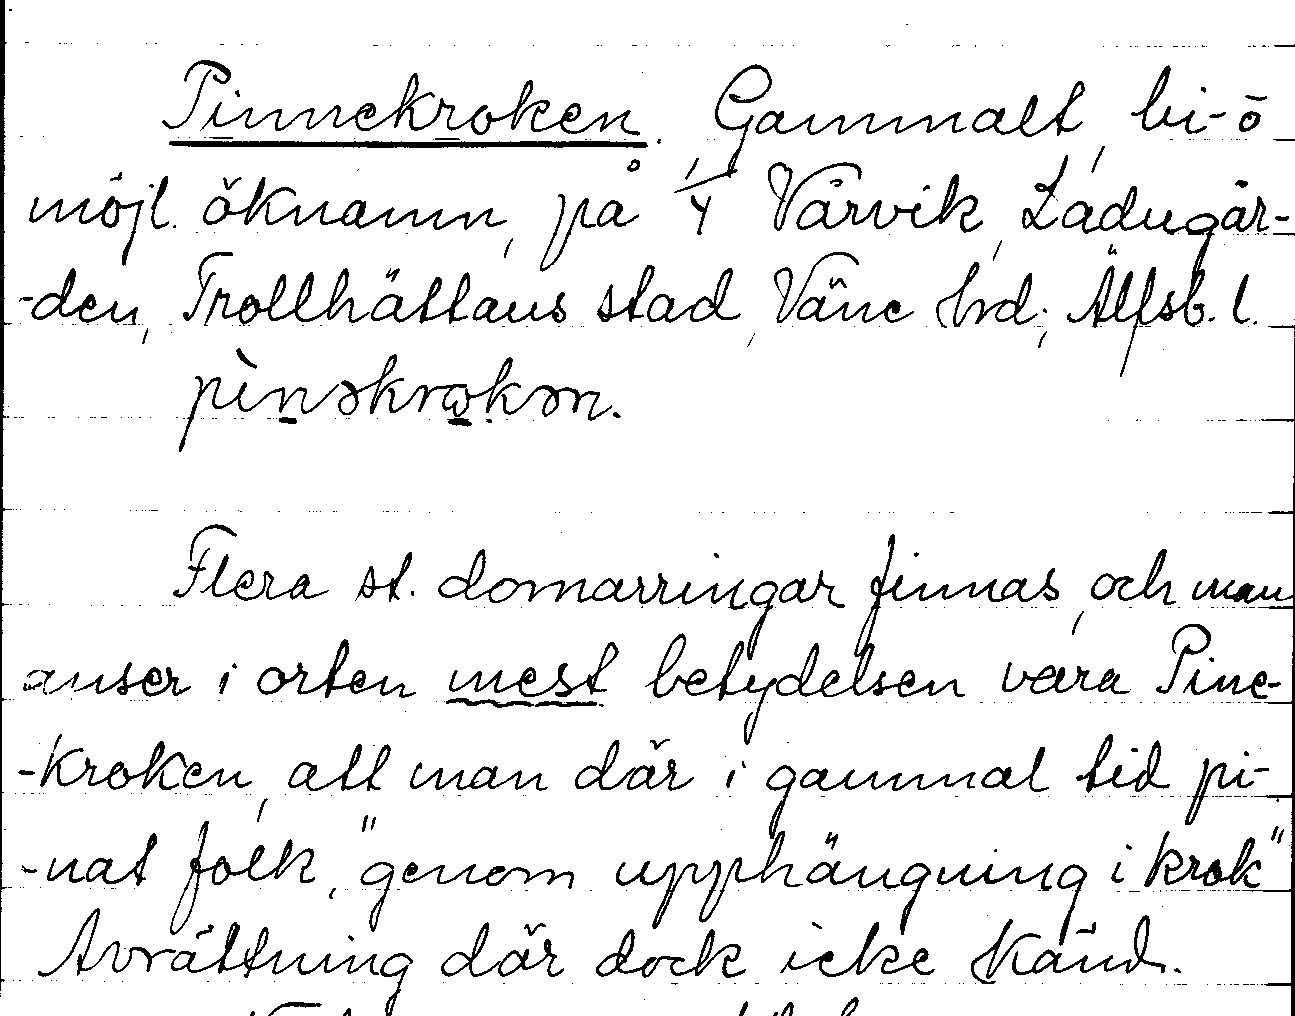 Pinnekroken. Gammalt, bi- o
möjl. öknamn, på 1/4 Vårvik, Ladugår-
-den, Trollhättans stad, Väne hd; Älfsb. l.
pìnəkrωkən.
Flera st. domarringar finnas, och man
anser i orten mest betydelsen vara Pine-
-kroken, att man där i gammal tid pi-
-nat folk, "genom upphängning i krok"
Avrättning där dock icke känd.